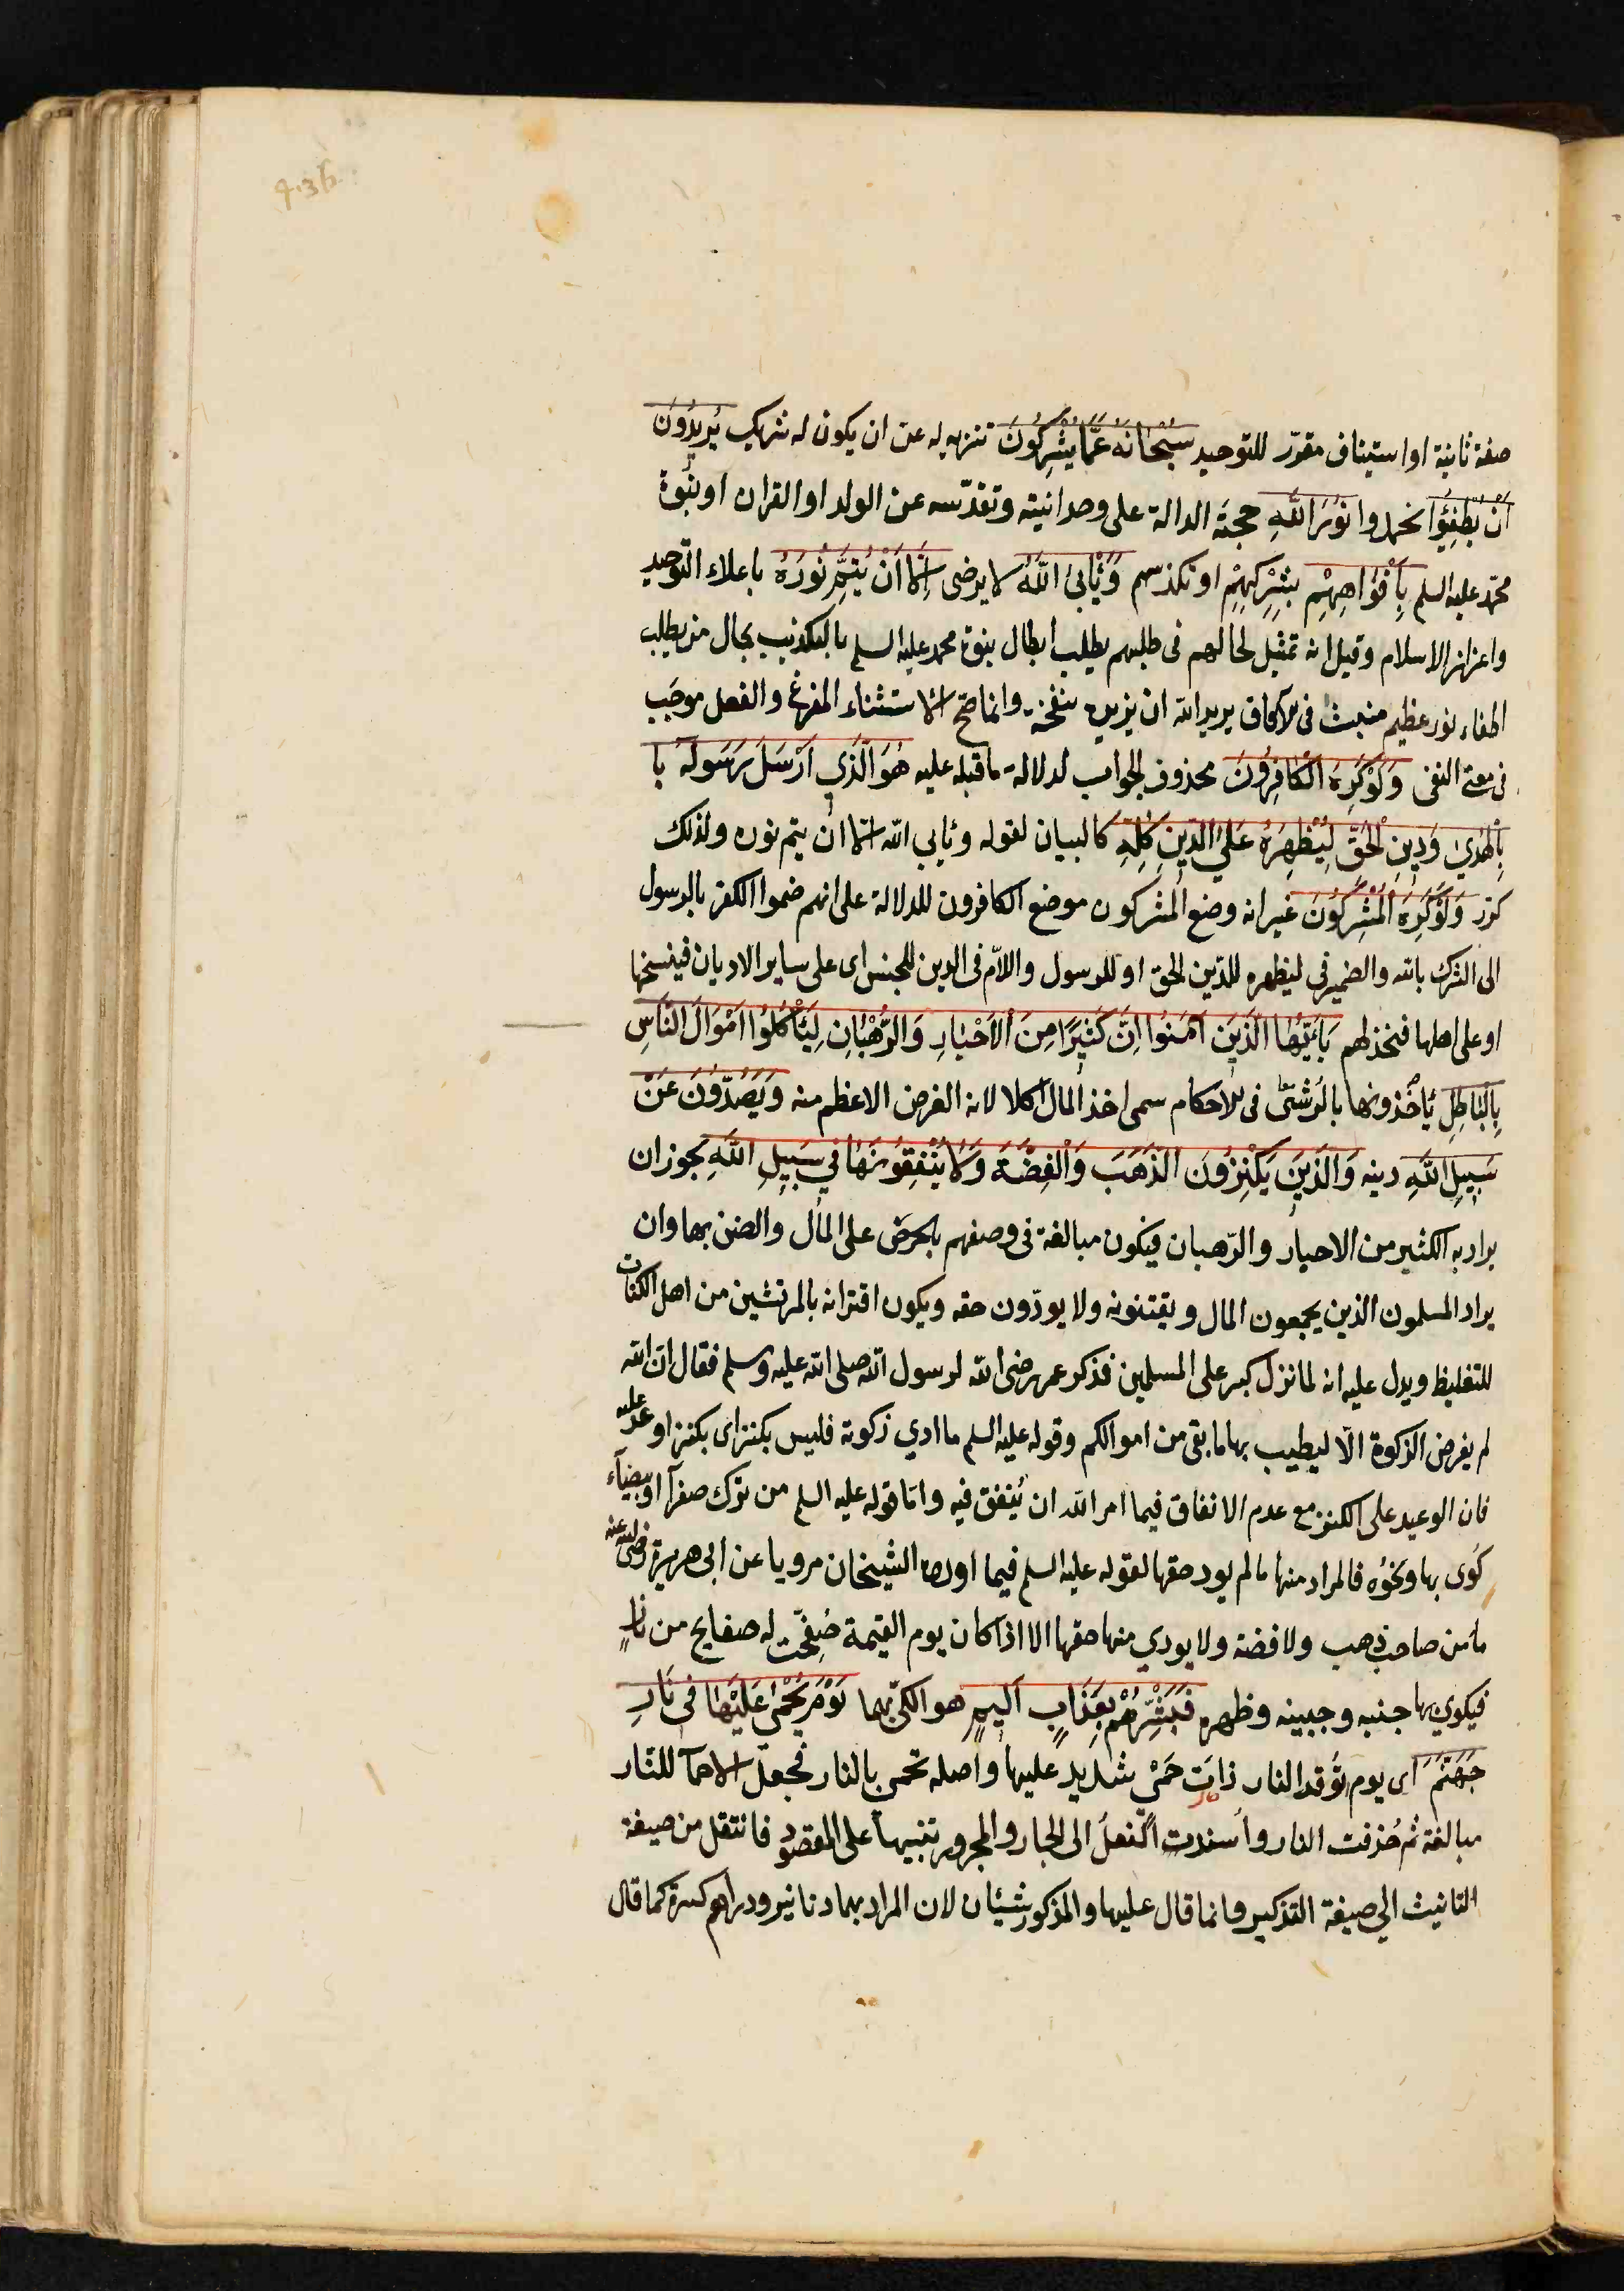 436
صفة ثانية او استيناف مقرّر للتوحيد سُبْحَانَهُ عَمَّا يُشْرِكُونَ تنزيه له عن ان يكون له شريك يُرِيدُونَ
اَنْ يُطْفِؤُا يخمدوا نُوْرَ اللّٰهِ حجته الدالة على وحدانيته وتقدّسه عن الولد او القران او نبوة
محمّد عليه السلم بِاَفْوَاهِهِمْ بشركهم او تكذيبهم وَيَأْبَى اللّٰهُ لا يرضى اِلَّا اَنْ يُتِمَّ نُورَهُ باعلاء التوحيد
واعزاز الاسلام وقيل انه تمثيل لحالهم فى طلبهم ابطال نبوة محمد عليه السلم بالتكذيب بحال من يطلب
اطفاء نور عظيم منبث فى الآفاق يريد الله ان يزيده بنفخه وانما صحّ الاستثناء المفرغ والفعل موجب
فى معنى النفى وَلَوْ كَرِهَ الْكَافِرُونَ محذوف الجواب لدلالة ما قبله عليه هُوَ الَّذِي اَرْسَلَ رَسُولَهُ با
بِالْهُدَىٰ وَدِينِ الْحَقِّ لِيُظْهِرَهُ عَلَى الدِّينِ كُلِّهِ كالبيان لقوله ويأبي الله الا ان يتم نوره ولذلك
كرّر وَلَوْ كَرِهَ الْمُشْرِكُونَ غير انه وضع المشركون موضع الكافرون للدلالة على انهم ضموا الكفر بالرسول
الى الشرك بالله والضمير فى ليظهره للدّين الحق او للرسول واللاّم فى الدين للجنس اى على ساير الاديان فينسخها
او على اهلها فيخذلهم يَا اَيُّهَا الَّذِينَ اٰمَنُوا اِنَّ كَثِيرًا مِنَ الْاَحْبَارِ وَالرُّهْبَانِ لَيَأْكُلُوا اَمْوَالَ النَّاسِ
بِالْبَاطِلِ يأخذونها بالرشى فى الاحكام سمى اخذ المال اكلا لانه الغرض الاعظم منه وَيَصُدُّونَ عَنْ
سَبِيلِ اللّٰهِ دينه وَالَّذِينَ يَكْنِزُونَ الذَّهَبَ وَالْفِضَّةَ وَلَا يُنْفِقُونَهَا فِي سَبِيلِ اللّٰهِ يجوز ان
يراد به الكثير من الاحبار والرّهبان فيكون مبالغة فى وصفهم بالحرض على المال والضن بها وان
يراد المسلمون الذين يجمعون المال ويقتنونه ولا يودّون حقه ويكون اقترانه بالمرتشين من اهل الكتاب
للتغليظ ويدل عليه انه لما نزل كبر على المسلمين فذكر عمر رضى الله لرسول الله صلى الله عليه وسلم فقال ان الله
لم يفرض الزكوة الّا ليطيب بها ما بقى من اموالكم وقوله عليه السلم ما ادي زكوته فليس بكنز اى بكنز اوعد عليه
فان الوعيد على الكنز مع عدم الانفاق فيما امر الله ان يُنفق فيه وامّا قوله عليه السلم من ترك صفرآ او بيضآء
كُوى بها ونحوُه فالمراد منها ما لم يود حقها لقوله عليه السلم فيما اورده الشيخان مرويا عن ابى هريرة رضى الله عنه
ما من صاحب ذهب ولا فضة ولا يودي منها حقها الا اذا كان يوم القيمة صُفِّحت له صفايح من نارٍ
فيكوي بها جنبه وجبينه وظهره فَبَشِّرْهُمْ بِعَذَابٍ اَلِيمٍ هو الكىّ بهما يَوْمَ يُحْمَىٰ عَلَيْهَا فِى نَارِ
جَهَنَّمَ اى يوم توقد النار ذات حَمْىٍ شديد عليها واصله تحمى بالنار فجعل الاحمآ للنّار
مبالغة ثم حُذفت النار واُسندت الفعلُ الى الجار والمجرور تنبيهاً على المقصود فانتقل من صيغة
التانيث الي صيغة التذكير وانما قال عليها والمذكور شيئان لان المراد بهما دنانير ودراهم كثيرة كما قال